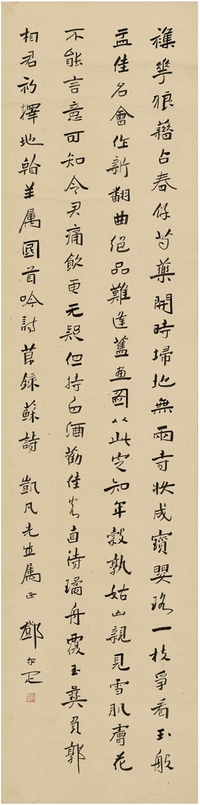 襍華狼藉占春餘芍藥開時埽地無兩寺妝成寶嬰珞一枝爭看玉般
盂佳名會作新翻曲絕品難逢舊畫圖从此定知年穀孰姑山親見雪肌膚花
不能言意可知令君痛飲更无疑但持白酒勸佳客直待璚舟覆玉彝負郭
相君初擇地翰羊属國首吟詩 節錄蘇詩 凱凡先生雅正 鄧尔疋